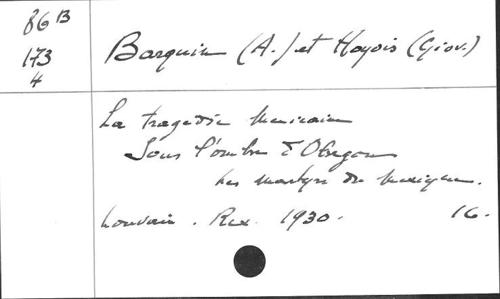 86 B
173
4
Barquin (A.) et Hoyois (Giov.)
La tragédie mexicaine
Sous l'ombre d'Obregon
Les martyrs du Mexique.
Louvain. Rex. 1930. 16.